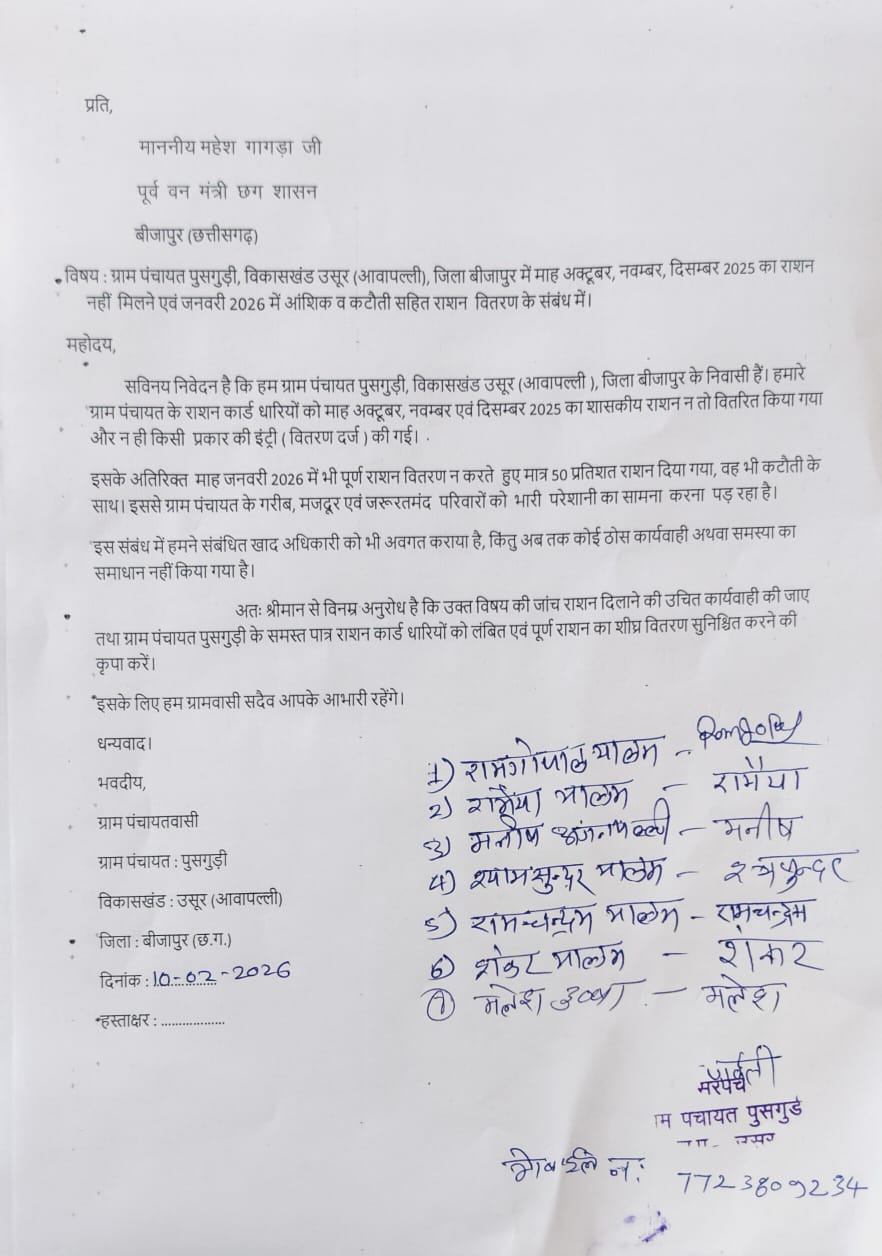 प्रति,
माननीय महेश गागड़ा जी
पूर्व वन मंत्री छग शासन
बीजापुर (छत्तीसगढ़)
विषय : ग्राम पंचायत पुसगुड़ी, विकासखंड उसूर (आवापल्ली), जिला बीजापुर में माह अक्टूबर, नवम्बर, दिसम्बर 2025 का राशन
नहीं मिलने एवं जनवरी 2026 में आंशिक व कटौती सहित राशन वितरण के संबंध में।
महोदय,
सविनय निवेदन है कि हम ग्राम पंचायत पुसगुड़ी, विकासखंड उसूर (आवापल्ली ), जिला बीजापुर के निवासी हैं। हमारे
ग्राम पंचायत के राशन कार्ड धारियों को माह अक्टूबर, नवम्बर एवं दिसम्बर 2025 का शासकीय राशन न तो वितरित किया गया
और न ही किसी प्रकार की इंट्री ( वितरण दर्ज ) की गई।
इसके अतिरिक्त माह जनवरी 2026 में भी पूर्ण राशन वितरण न करते हुए मात्र 50 प्रतिशत राशन दिया गया, वह भी कटौती के
साथ। इससे ग्राम पंचायत के गरीब, मजदूर एवं जरूरतमंद परिवारों को भारी परेशानी का सामना करना पड़ रहा है।
इस संबंध में हमने संबंधित खाद अधिकारी को भी अवगत कराया है, किंतु अब तक कोई ठोस कार्यवाही अथवा समस्या का
समाधान नहीं किया गया है।
अतः श्रीमान से विनम्र अनुरोध है कि उक्त विषय की जांच राशन दिलाने की उचित कार्यवाही की जाए
तथा ग्राम पंचायत पुसगुड़ी के समस्त पात्र राशन कार्ड धारियों को लंबित एवं पूर्ण राशन का शीघ्र वितरण सुनिश्चित करने की
कृपा करें।
इसके लिए हम ग्रामवासी सदैव आपके आभारी रहेंगे।
धन्यवाद।
भवदीय,
ग्राम पंचायतवासी
ग्राम पंचायत : पुसगुड़ी
विकासखंड : उसूर (आवापल्ली)
जिला : बीजापुर (छ.ग.)
दिनांक : 10-02-2026
हस्ताक्षर : ..................
1) रामगोपाल यालम -
2) रामैया यालम - रामैया
3) मनीष - मनीष
4) श्यामसुन्दर यालम -
5) रामचन्द्रम यालम - रामचन्द्रम
6) शंकर यालम - शंकर
7) मलेश - मलेश
पार्वती
सरपंच
म पंचायत पुसगुड
मोबाईल नं: 7723809234